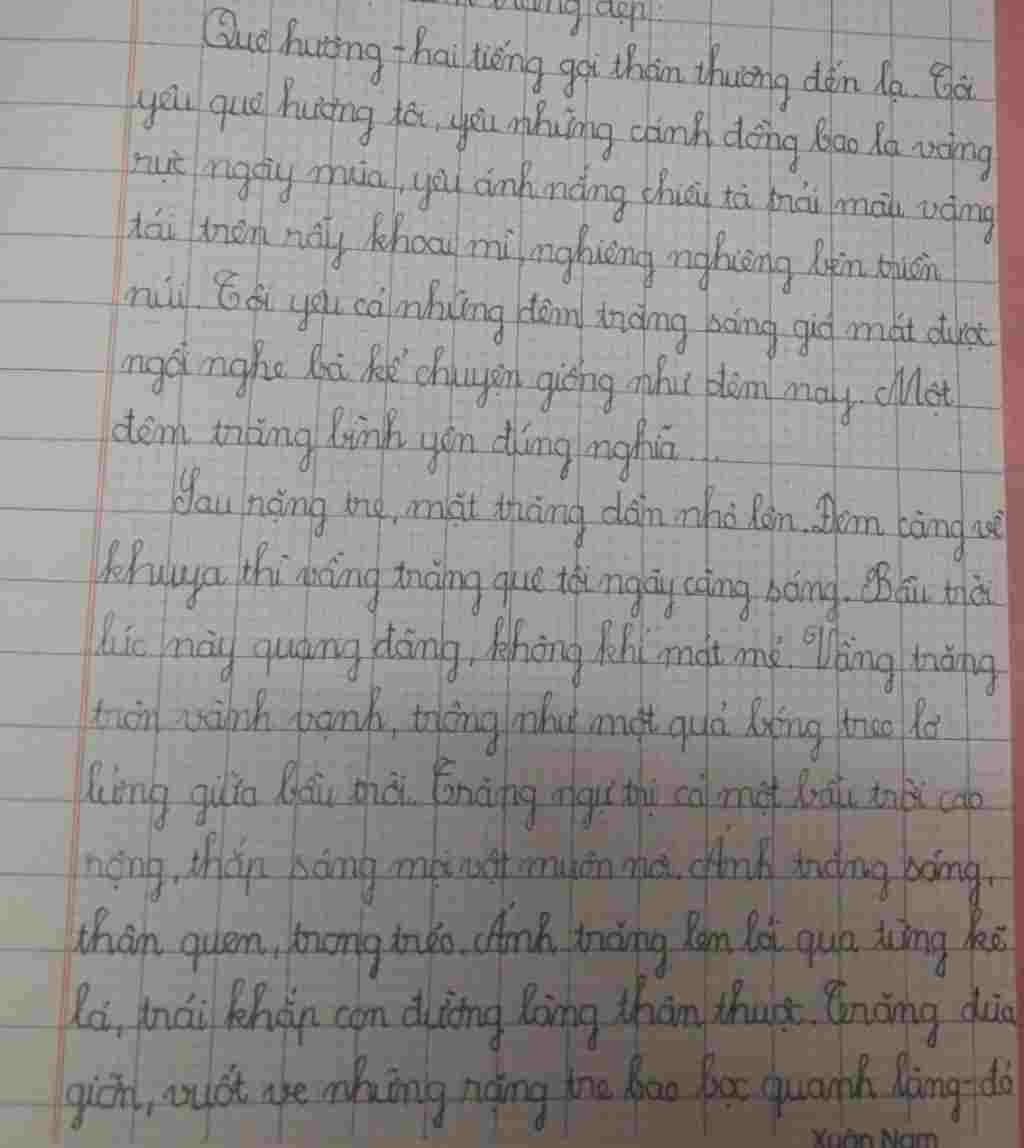 đẹp.
Quê hương - hai tiếng gọi thân thương đến lạ. Tôi
yêu quê hương tôi, yêu những cánh đồng bao la vàng
rực ngày mùa, yêu ánh nắng chiều tà trải màu vàng
tái trên rẫy khoai mì nghiêng nghiêng bên triền
núi. Tôi yêu cả những đêm trăng sáng gió mát được
ngồi nghe bà kể chuyện giống như đêm nay. Một
đêm trăng bình yên đúng nghĩa...
Sau rặng tre, mặt trăng dần nhô lên. Đêm càng về
khuya thì vầng trăng quê tôi ngày càng sáng. Bầu trời
lúc này quang đãng, không khí mát mẻ. Vầng trăng
tròn vành vạnh, trông như một quả bóng treo lơ
lửng giữa bầu trời. Trăng ngự trị cả một bầu trời cao
rộng, thắp sáng mọi vật muôn nơi. Ánh trăng sáng,
thân quen, trong trẻo. Ánh trăng len lỏi qua từng kẽ
lá, trải khắp con đường làng thân thuộc. Trăng đùa
giỡn, vuốt ve những rặng tre bao bọc quanh làng-đó
Xuân Nam